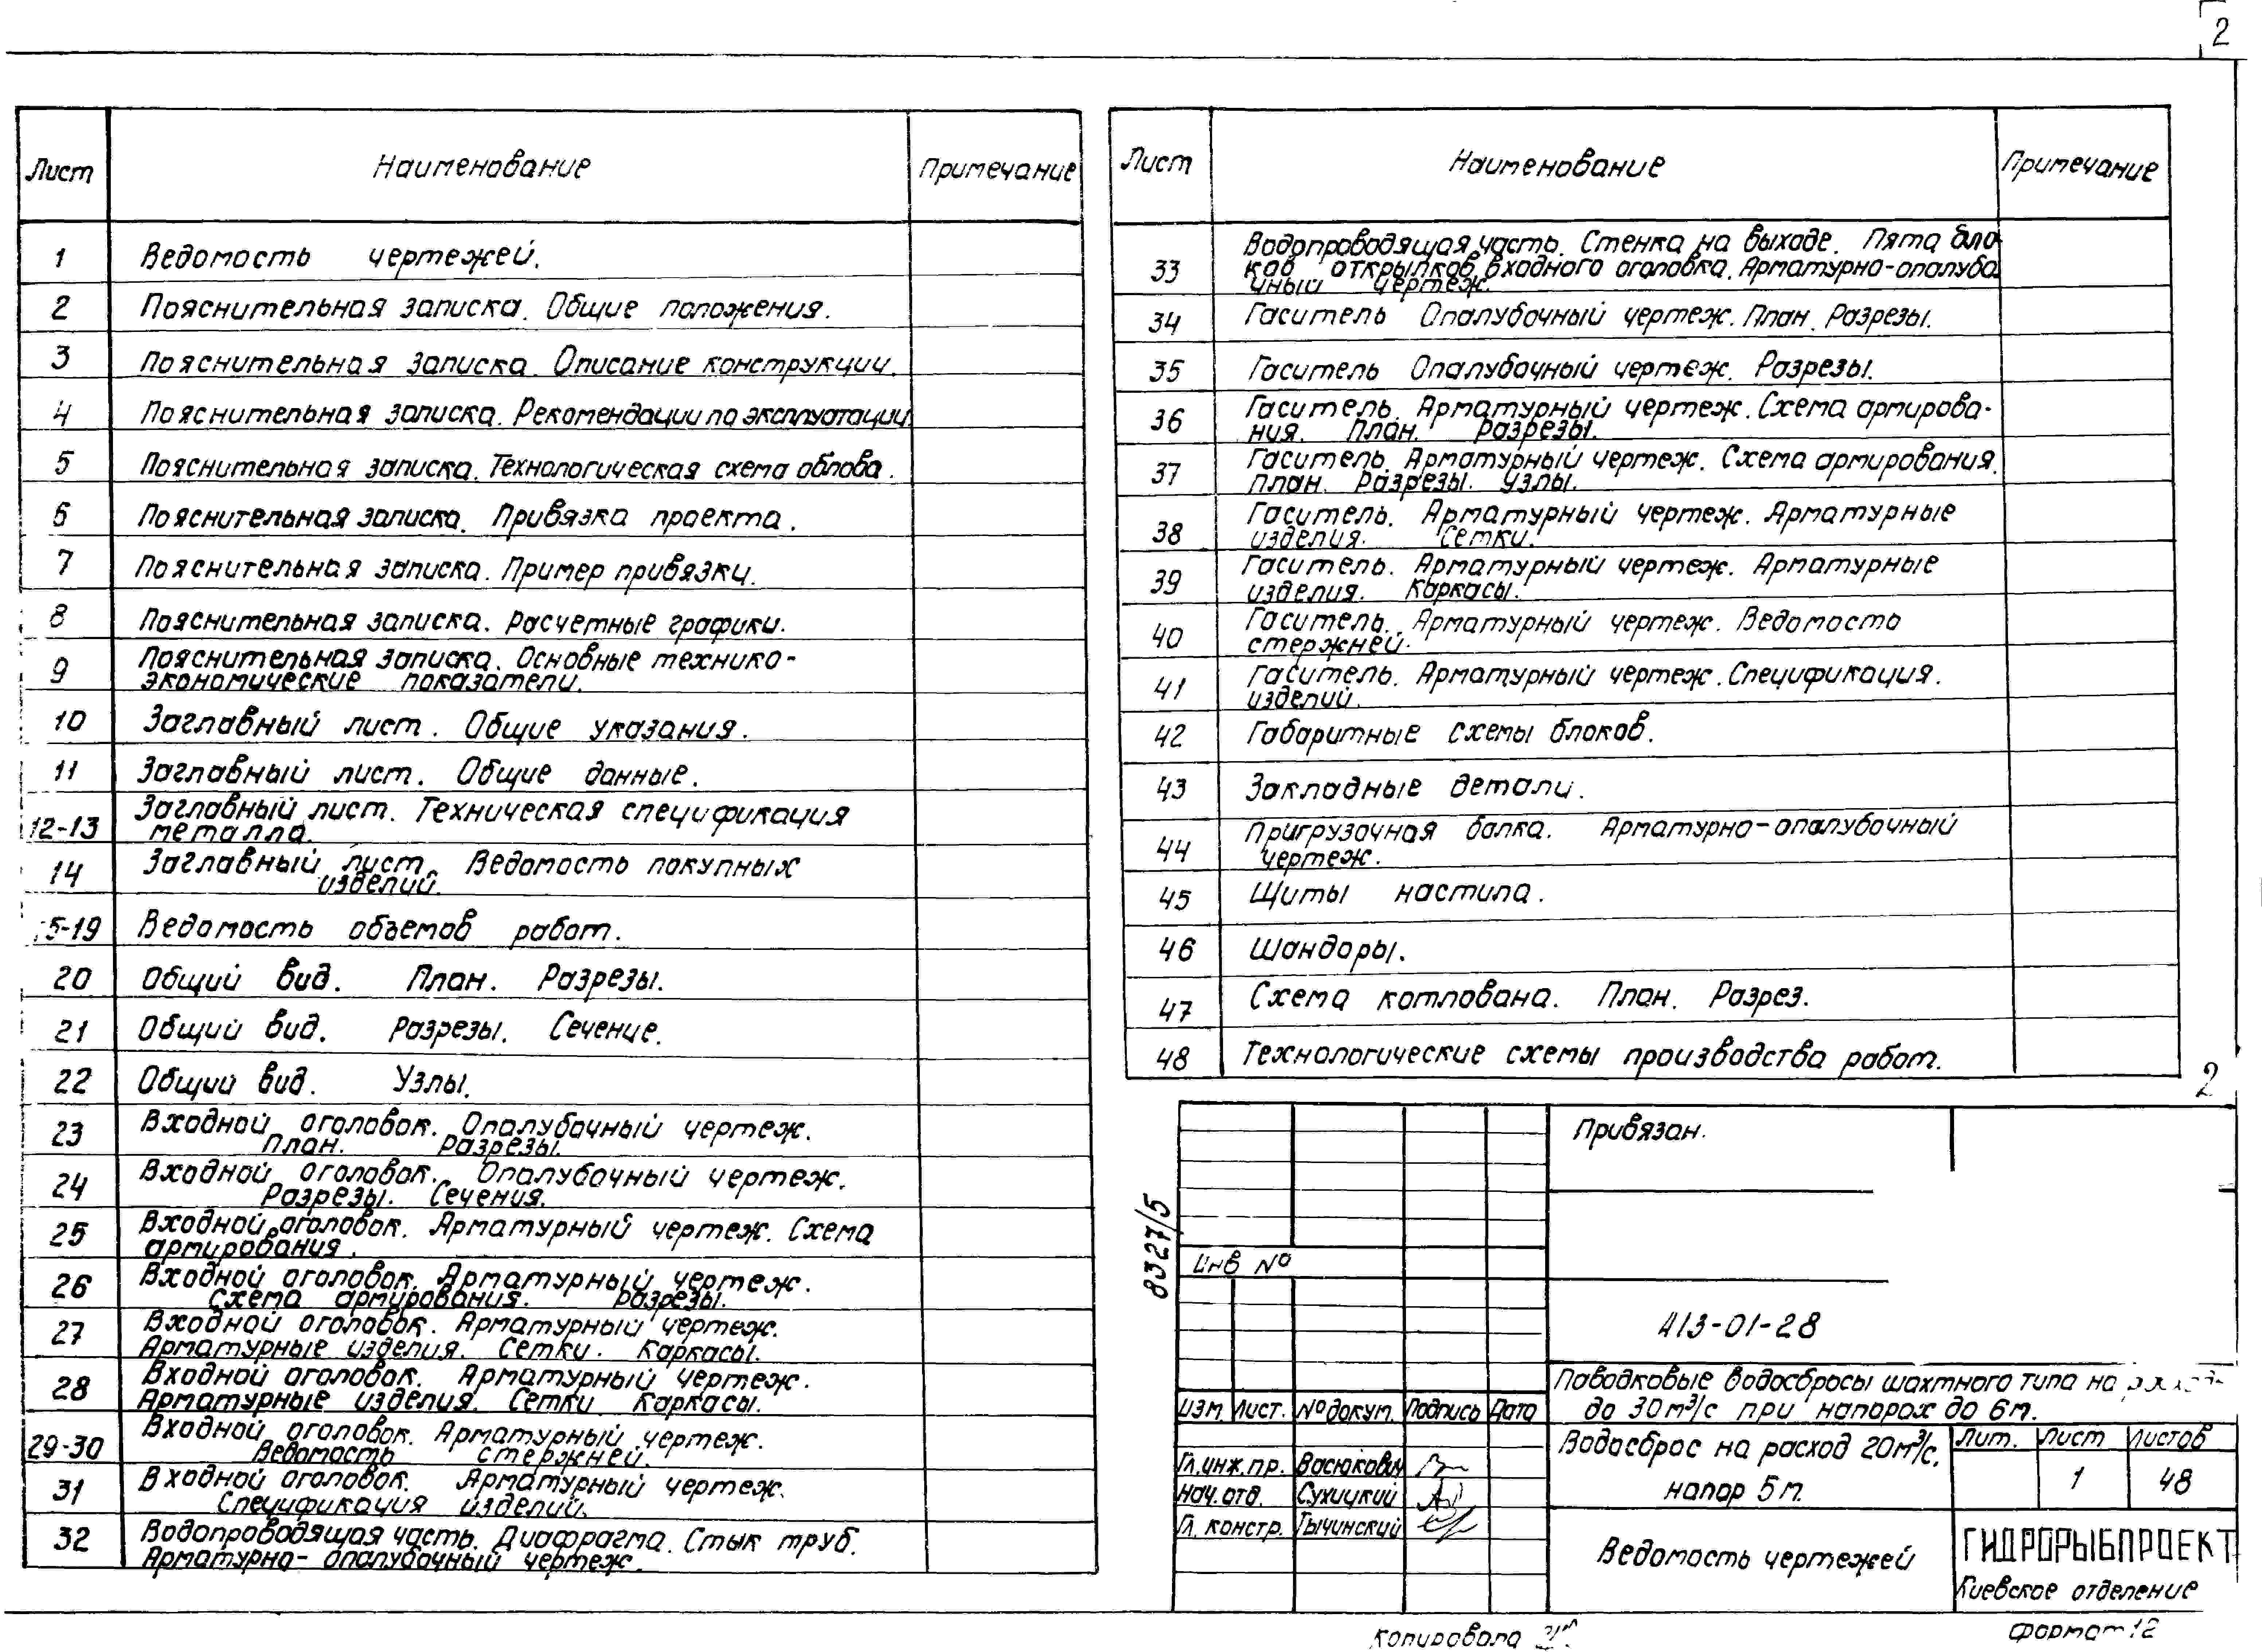 2
Лист Наименование Примечание
1 Ведомость чертежей.
2 Пояснительная записка. Общие положения.
3 Пояснительная записка. Описание конструкции.
4 Пояснительная записка. Рекомендации по эксплуатации.
5 Пояснительная записка. Технологическая схема облова.
6 Пояснительная записка. Привязка проекта.
7 Пояснительная записка. Пример привязки.
8 Пояснительная записка. Расчетные графики.
9 Пояснительная записка. Основные технико-
экономические показатели.
10 Заглавный лист. Общие указания.
11 Заглавный лист. Общие данные.
12-13 Заглавный лист. Техническая спецификация
металла.
14 Заглавный лист. Ведомость покупных
изделий.
5-19 Ведомость объемов работ.
20 Общий вид. План. Разрезы.
21 Общий вид. Разрезы. Сечение.
22 Общий вид. Узлы.
23 Входной оголовок. Опалубочный чертеж.
План. Разрезы.
24 Входной оголовок. Опалубочный чертеж.
Разрезы. Сечения.
25 Входной оголовок. Арматурный чертеж. Схема
армирования.
26 Входной оголовок. Арматурный чертеж.
Схема армирования. Разрезы.
27 Входной оголовок. Арматурный чертеж.
Арматурные изделия. Сетки. Каркасы.
28 Входной оголовок. Арматурный чертеж.
Арматурные изделия. Сетки Каркасы.
29-30 Входной оголовок. Арматурный чертеж.
Ведомость стержней.
31 Входной оголовок. Арматурный чертеж.
Спецификация изделий.
32 Водопроводящая часть. Диафрагма. Стык труб.
Арматурно-опалубочный чертеж.
Лист Наименование Примечание
33 Водопроводящая часть. Стенка на выходе. Пята бло-
ков открылков входного оголовка. Арматурно-опалубо
чный чертеж.
34 Гаситель Опалубочный чертеж. План. Разрезы.
35 Гаситель Опалубочный чертеж. Разрезы.
36 Гаситель. Арматурный чертеж. Схема армирова-
ния. План. Разрезы.
37 Гаситель. Арматурный чертеж. Схема армирования.
План. Разрезы. Узлы.
38 Гаситель. Арматурный чертеж. Арматурные
изделия. Сетки.
39 Гаситель. Арматурный чертеж. Арматурные
изделия. Каркасы.
40 Гаситель. Арматурный чертеж. Ведомость
стержней.
41 Гаситель. Арматурный чертеж. Спецификация.
изделий.
42 Габаритные схемы блоков.
43 Закладные детали.
44 Пригрузочная балка. Арматурно-опалубочный
чертеж.
45 Щиты настила.
46 Шандоры.
47 Схема котлована. План. Разрез.
48 Технологические схемы производства работ.
2
Привязан.
8327/5
Инв №
413-01-28
Паводковые водосбросы шахтного типа на
до 30 м³/с при напорах до 6 м.
Изм Лист. № докум. Подпись Дата
Водосброс на расход 20 м³/с.
напор 5 м.
Лит. Лист Листов
1 48
Гл. инж. пр. Васюкович
Нач. отд. Сухицкий
Гл. констр. Тычинский
Ведомость чертежей
ГИДРОРЫБПРОЕКТ
Киевское отделение
Копировала
Формат 12